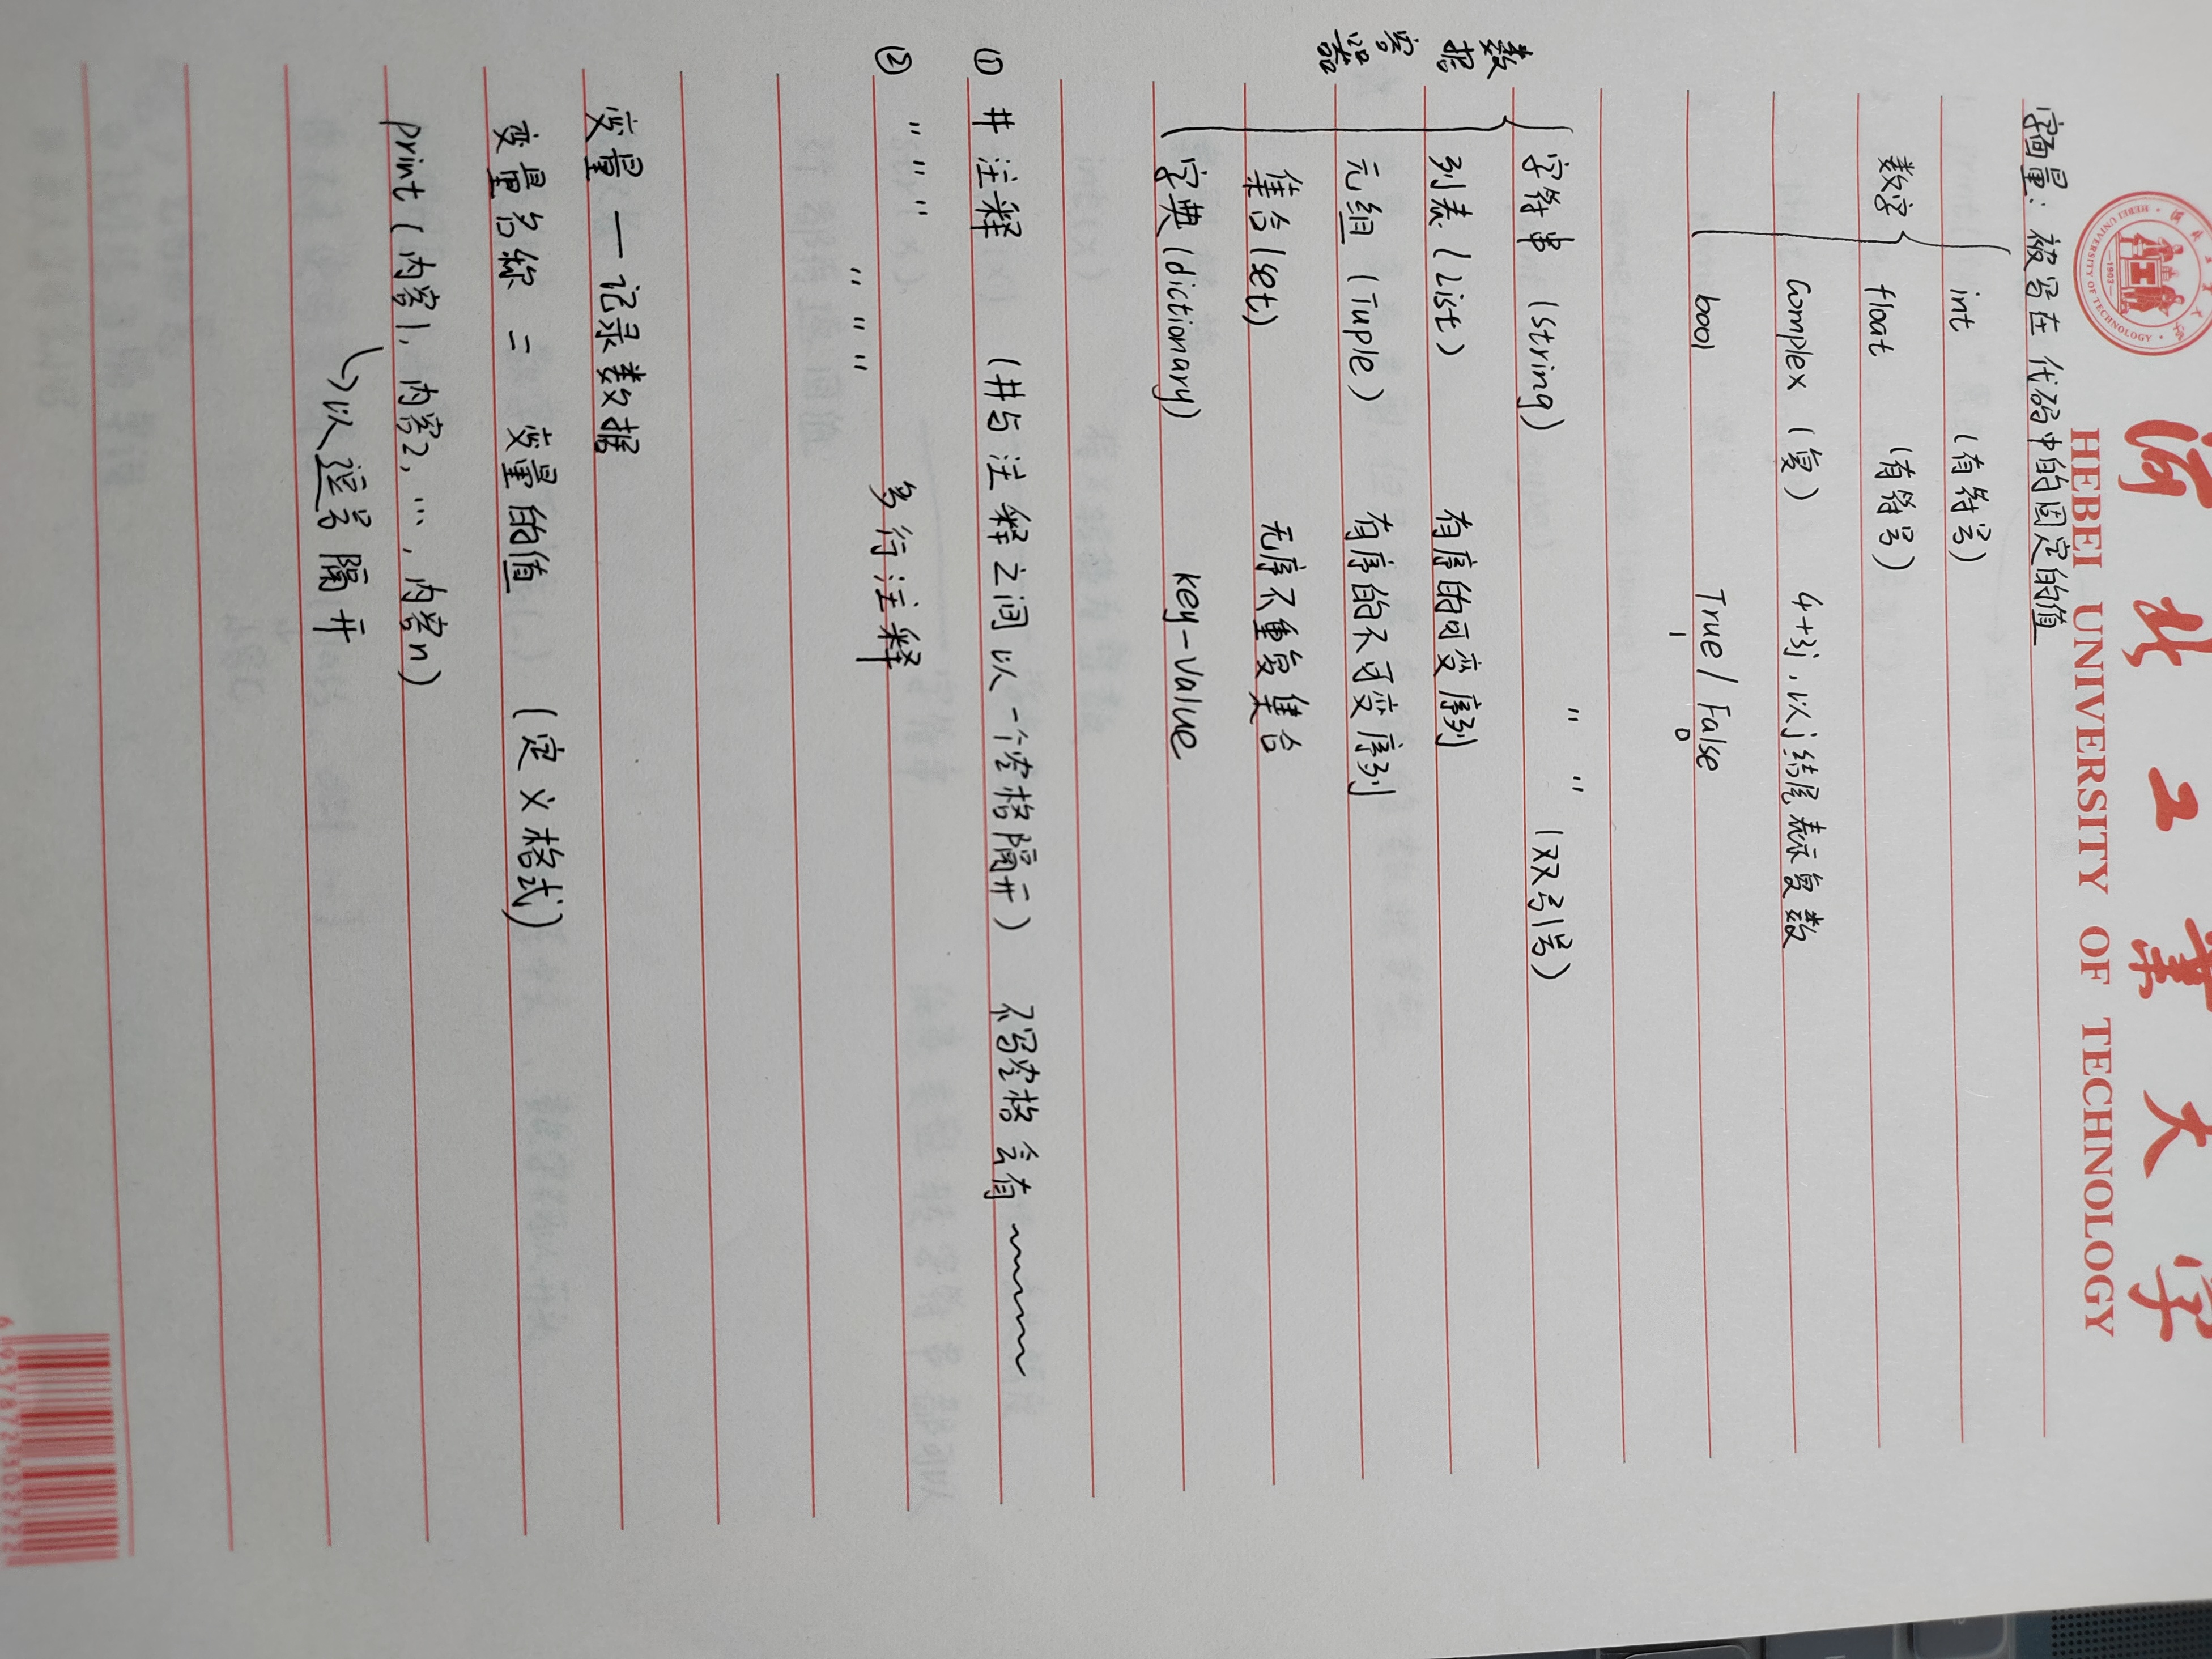 河北工業大学
HEBEI UNIVERSITY OF TECHNOLOGY
河北工業大学
HEBEI UNIVERSITY OF TECHNOLOGY
1903
字面量：被写在代码中的固定的值
数字
int (有符号)
float (有符号)
complex (复) 4+3j，以j结尾表示复数
bool True / False
1 0
数据容器
字符串 (String) " " (双引号)
列表 (List) 有序的可变序列
元组 (Tuple) 有序的不可变序列
集合 (set) 无序不重复集合
字典 (dictionary) key-value
① # 注释 (#与注释之间以一个空格隔开) 不写空格会有 ~~~~~
② " " "
多行注释
" " "
变量 — 记录数据
变量名称 = 变量的值 (定义格式)
print (内容1, 内容2, …, 内容n)
↳以逗号隔开